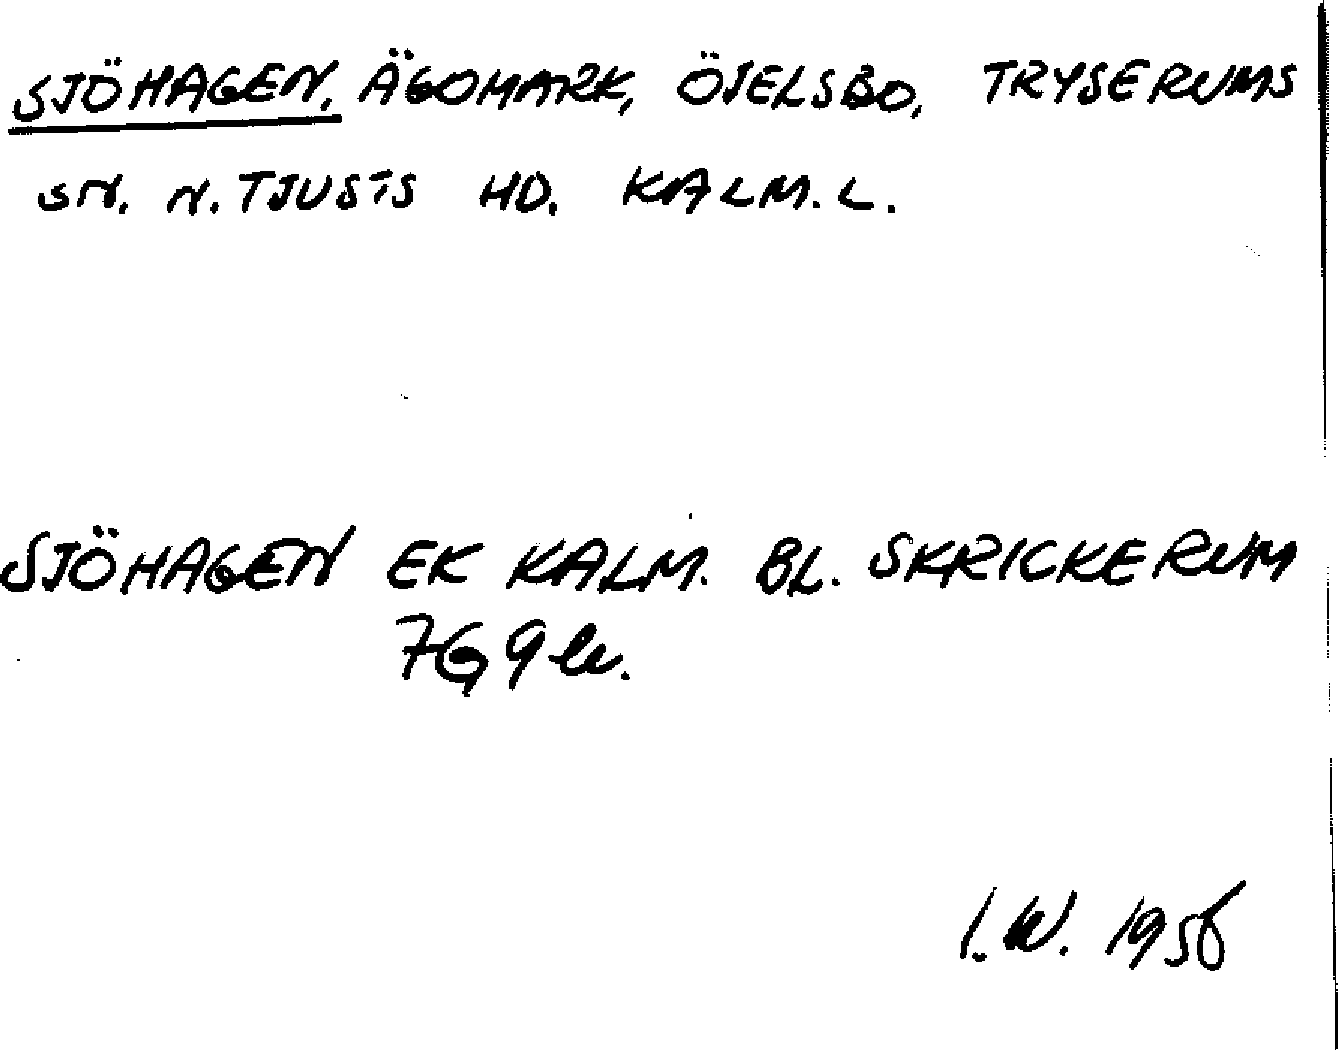 SJÖHAGEN, ÄGOMARK, ÖJELSBO, TRYSERUMS
SN. N. TJUSTS HD. KALM. L.
SJÖHAGEN EK KALM. BL. SKRICKERUM
7G 9
I.W. 1956